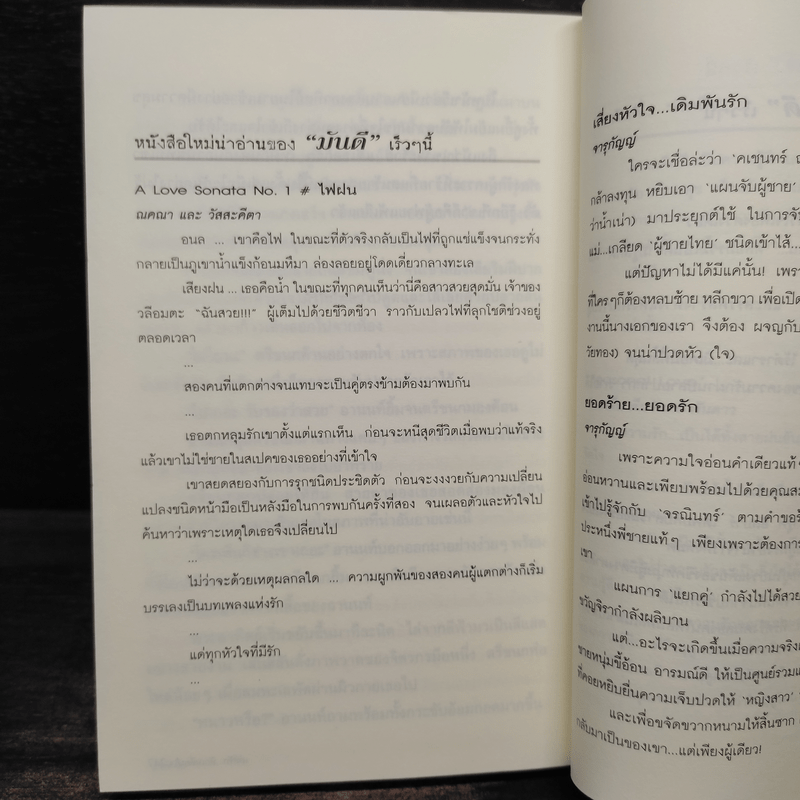 หนังสือใหม่น่าอ่านของ “มันดี” เร็วๆนี้
A Love Sonata No. 1 # ไฟฝน
ณคณา และ วัสสะคีตา
อนล ... เขาคือไฟ ในขณะที่ตัวจริงกลับเป็นไฟที่ถูกแช่แข็งจนกระทั่ง
กลายเป็นภูเขาน้ำแข็งก้อนมหึมา ล่องลอยอยู่โดดเดี่ยวกลางทะเล
เสียงฝน ... เธอคือน้ำ ในขณะที่ทุกคนเห็นว่านี่คือสาวสวยสุดมั่น เจ้าของ
วลีอมตะ “ฉันสวย!!!” ผู้เต็มไปด้วยชีวิตชีวา ราวกับเปลวไฟที่ลุกโชติช่วงอยู่
ตลอดเวลา
...
สองคนที่แตกต่างจนแทบจะเป็นคู่ตรงข้ามต้องมาพบกัน
...
เธอตกหลุมรักเขาตั้งแต่แรกเห็น ก่อนจะหนีสุดชีวิตเมื่อพบว่าแท้จริง
แล้วเขาไม่ใช่ชายในสเปคของเธออย่างที่เข้าใจ
เขาสยดสยองกับการรุกชนิดประชิดตัว ก่อนจะงงงวยกับความเปลี่ยน
แปลงชนิดหน้ามือเป็นหลังมือในการพบกันครั้งที่สอง จนเผลอตัวและหัวใจไป
ค้นหาว่าเพราะเหตุใดเธอจึงเปลี่ยนไป
...
ไม่ว่าจะด้วยเหตุผลกลใด ... ความผูกพันของสองคนผู้แตกต่างก็เริ่ม
บรรเลงเป็นบทเพลงแห่งรัก
...
แต่ทุกหัวใจที่มีรัก
...
เสี่ยงหัวใจ...เดิมพันรัก
จารุกัญญ์
ใครจะเชื่อล่ะว่า ‘คเชนทร์
กล้าลงทุน หยิบเอา ‘แผนจับผู้ชาย’
ว่าน้ำเน่า) มาประยุกต์ใช้ ในการ
แม่...เกลียด ‘ผู้ชายไทย’ ชนิดเข้าไส้...
แต่ปัญหาไม่ได้มีแค่นั้น!
ที่ใครๆก็ต้องหลบซ้าย หลีกขวา เพื่อเปิด
งานนี้นางเอกของเรา จึงต้อง ผจญกับ
วัยทอง) จนน่าปวดหัว (ใจ)
ยอดร้าย...ยอดรัก
จารุกัญญ์
เพราะความใจอ่อนคำเดียวแท้ๆ
อ่อนหวานและเพียบพร้อมไปด้วย
เข้าไปรู้จักกับ ‘จรณินทร์’ ตามคำขอ
ประหนึ่งพี่ชายแท้ๆ เพียงเพราะต้องการ
เขา
แผนการ ‘แยกคู่’ กำลังไปได้สวย
ขวัญจิรากำลังผลิบาน
แต่...อะไรจะเกิดขึ้นเมื่อความจริง
ชายหนุ่มขี้อ้อน อารมณ์ดี ให้เป็นศูนย์รวม
ที่คอยหยิบยื่นความเจ็บปวดให้ ‘หญิงสาว’
และเพื่อขจัดขวากหนามให้สิ้นซาก
กลับมาเป็นของเขา...แต่เพียงผู้เดียว!